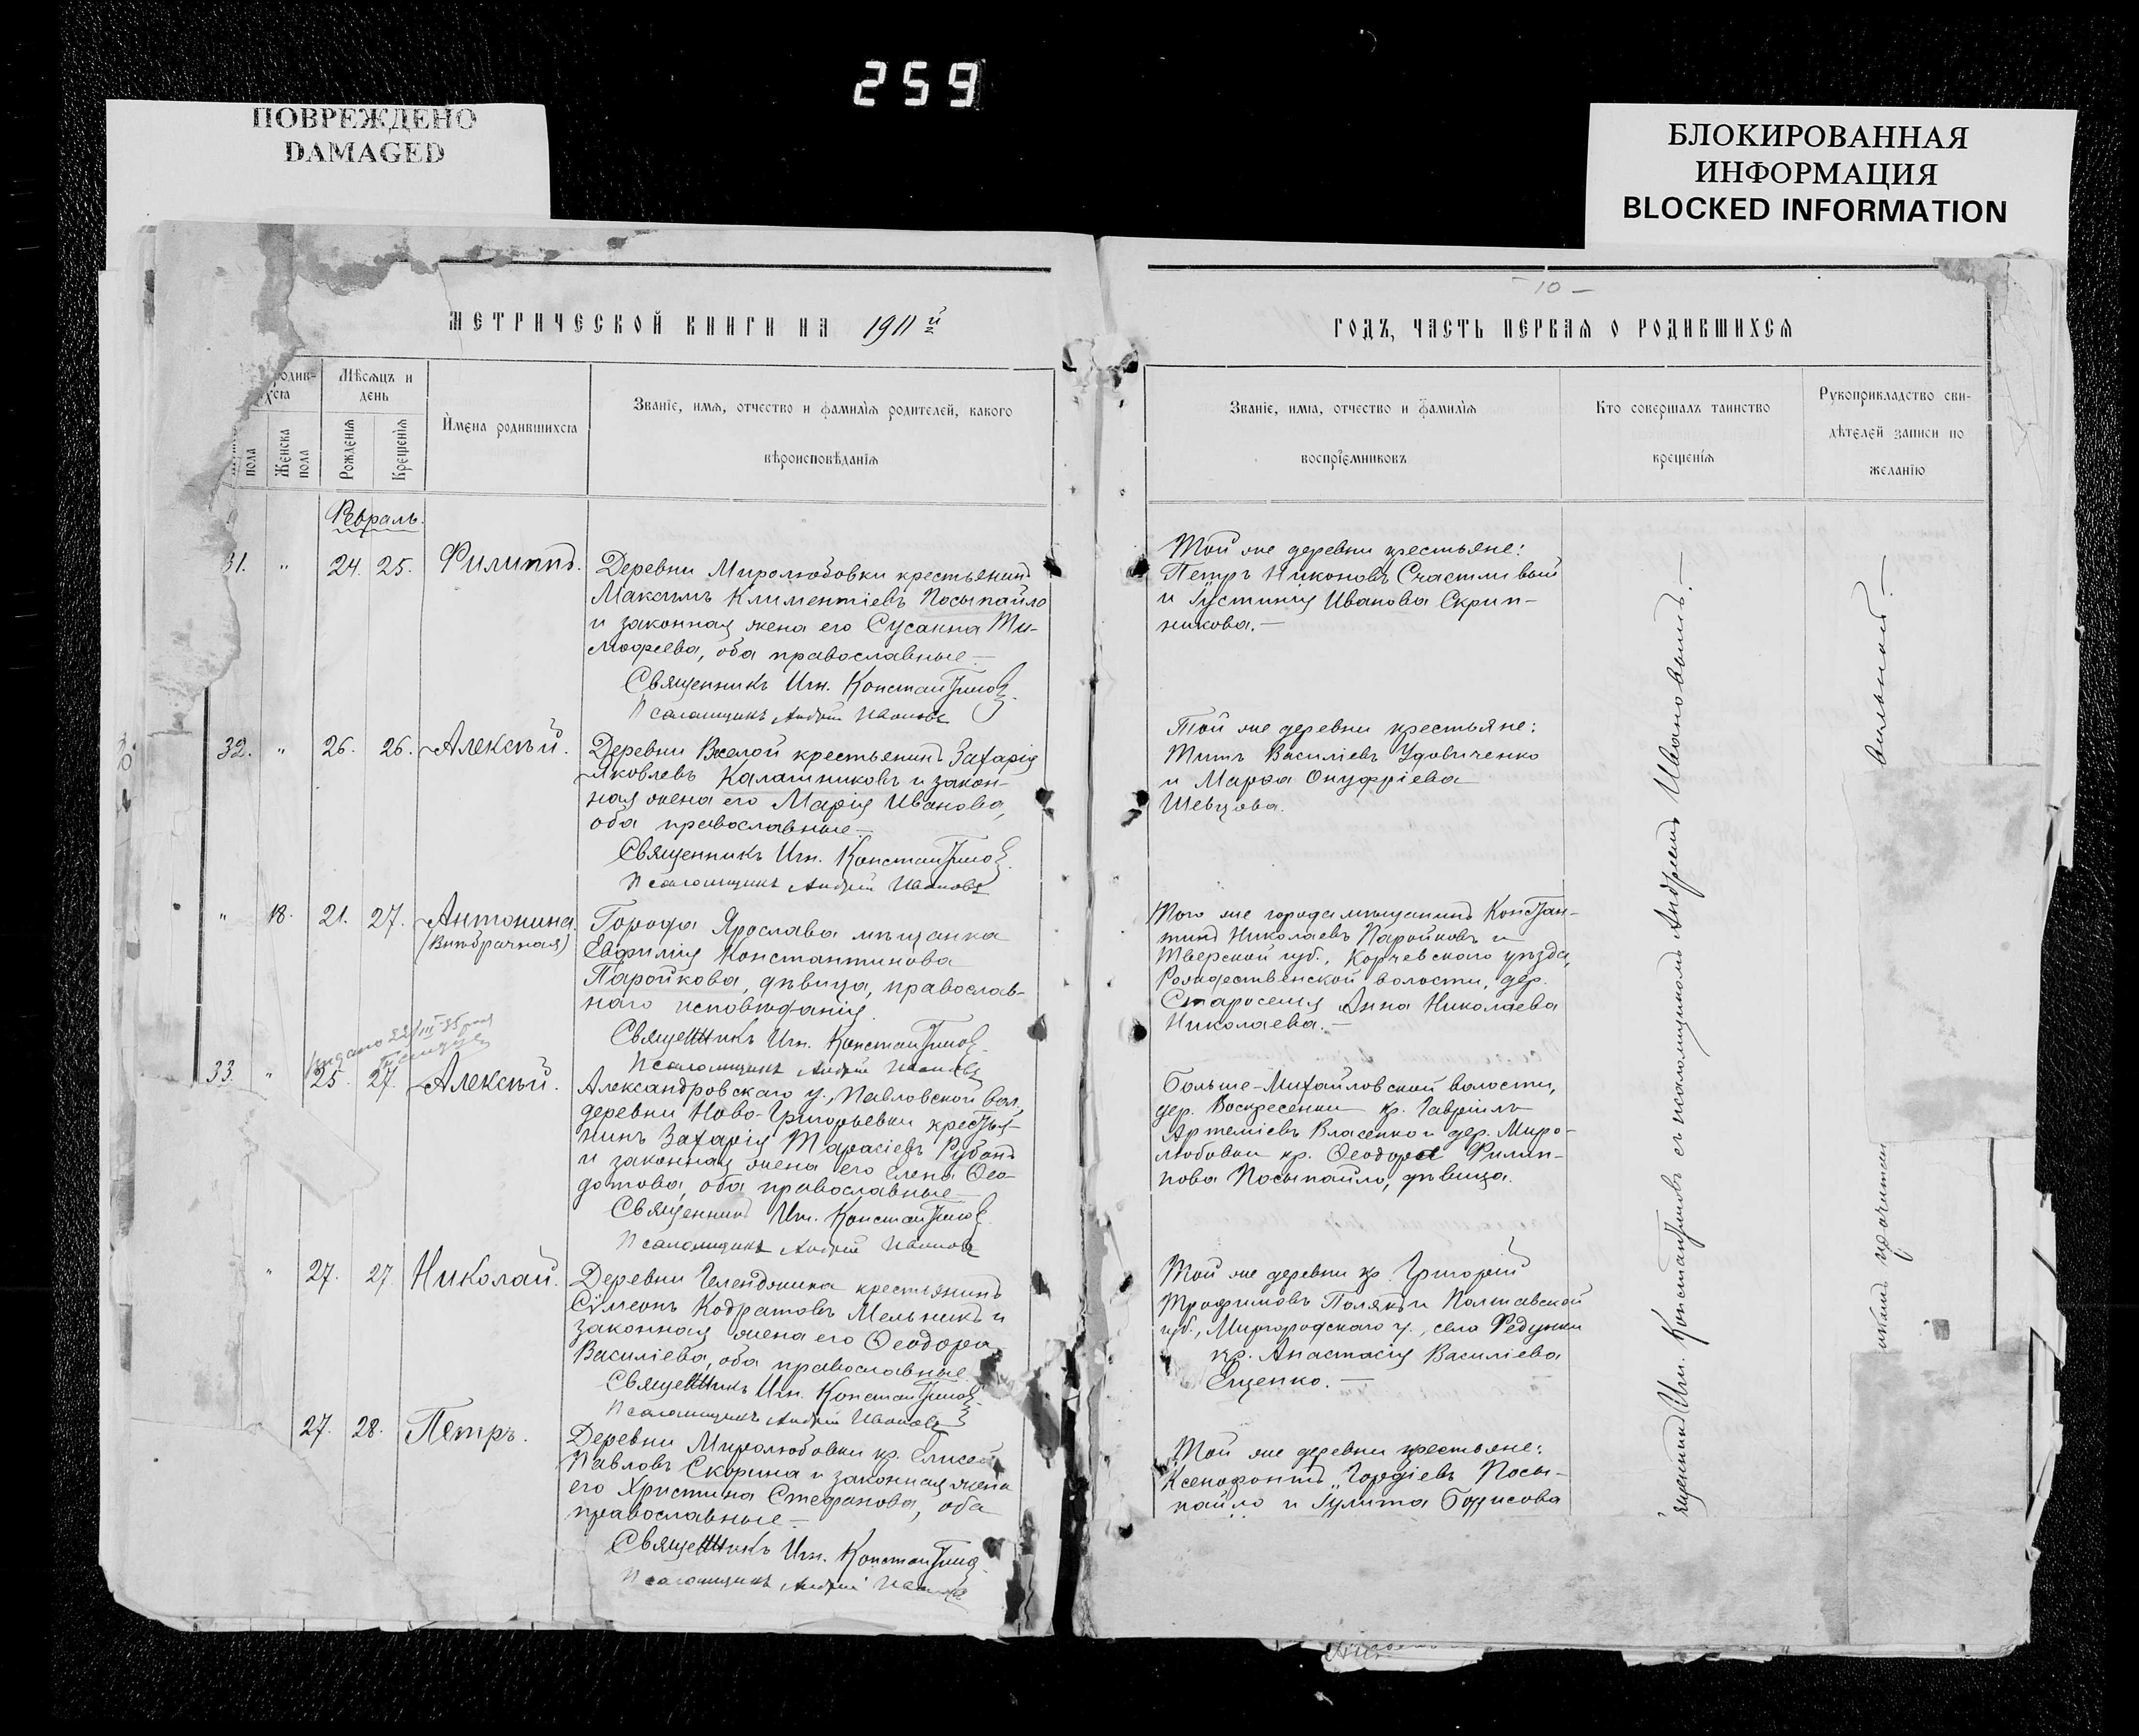 259
ПОВРЕЖДЕНО
DAMAGED
БЛОКИРОВАННАЯ
ИНФОРМАЦИЯ
BLOCKED INFORMATION
МЕТРИЧЕСКОЙ КНИГИ НА 1911й
родив-
хся
Мѣсяцъ и
день
пола
Женска
пола
Рожденія
Крещенія
Имена родившихся
Званіе, имя, отчество и фамилія родителей, какого
вѣроисповѣданія
Февраль.
31. " 24. 25. Филиппъ.
Деревни Миролюбовки крестьянинъ
Максимъ Климентіевъ Посыпайло
и законная жена его Сусанна Ти-
мофеева, оба православные.—
Священникъ Игн. Константиновъ.
Псаломщикъ Андрей Ивановъ
32. " 26. 26. Алексѣй.
Деревни Веселой крестьянинъ Захарія
Яковлевъ Калашниковъ и закон-
ная жена его Марія Иванова,
оба православные.—
Священникъ Игн. Константиновъ.
Псаломщикъ Андрей Ивановъ
" 18. 21. 27. Антонина.
(Внѣбрачная)
Города Ярослава мѣщанка
Евфимія Константинова
Паройкова, дѣвица, православ-
наго исповѣданія.
Священникъ Игн. Константиновъ.
Псаломщикъ Андрей Ивановъ
33. " 25. 27. Алексѣй.
Александровскаго у., Павловской вол.,
деревни Ново-Григорьевки крестья-
нинъ Захарія Тарасіевъ Рубанъ
и законная жена его Елена Ѳео-
дотова, оба православные.—
Священникъ Игн. Константиновъ.
Псаломщикъ Андрей Ивановъ
" 27. 27. Николай.
Деревни Геленджика крестьянинъ
Сѵмеонъ Кодратовъ Мельникъ и
законная жена его Ѳеодора
Василіева, оба православные.
Священникъ Игн. Константиновъ.
Псаломщикъ Андрей Ивановъ
27. 28. Петръ.
Деревни Миролюбовки кр. Елисей
Павловъ Скорина и законная жена
его Христина Стефанова, оба
православные.—
Священникъ Игн. Константиновъ.
Псаломщикъ Андрей Ивановъ
– 10 –
ГОДЪ, ЧАСТЬ ПЕРВАЯ О РОДИВШИХСЯ
Званіе, имя, отчество и фамилія
воспріемниковъ
Кто совершалъ таинство
крещенія
Рукоприкладство сви-
дѣтелей записи по
желанію
Той же деревни крестьяне:
Петръ Никоновъ Счастливый
и Іустинія Иванова Скрип-
никова.—
Той же деревни крестьяне:
Титъ Василіевъ Удовиченко
и Марфа Онуфріева
Шевцова.
Того же города мѣщанинъ Констан-
тинъ Николаевъ Паройковъ и
Тверской губ., Корчевскаго уѣзда,
Рождественской волости, дер.
Староселья Анна Николаева
Николаева.—
Больше-Михайловской волости,
дер. Воскресенки кр. Гавріилъ
Артеміевъ Власенко и дер. Миро-
любовки кр. Ѳеодора Филип-
пова Посыпайло, дѣвица.
Той же деревни кр. Григорій
Трофимовъ Полякъ и Полтавской
губ., Миргородскаго у., села Федунки
кр. Анастасія Василіева
Ещенко.—
Той же деревни крестьяне:
Ксенофонтъ Гордіевъ Посы-
пайло и Іулита Борисова
Священникъ Игн. Константиновъ съ псаломщикомъ Андреемъ Ивановымъ.—